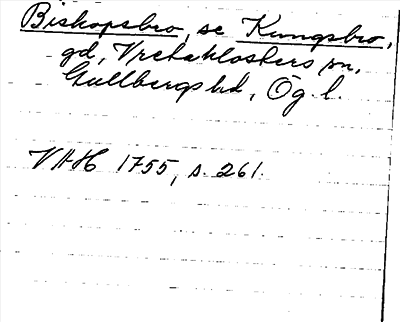 Biskopsbro, se Kungsbro,
gd, Vretaklosters sn,
Gullbergs hd, Ög. l.
VAH 1755, s. 261.